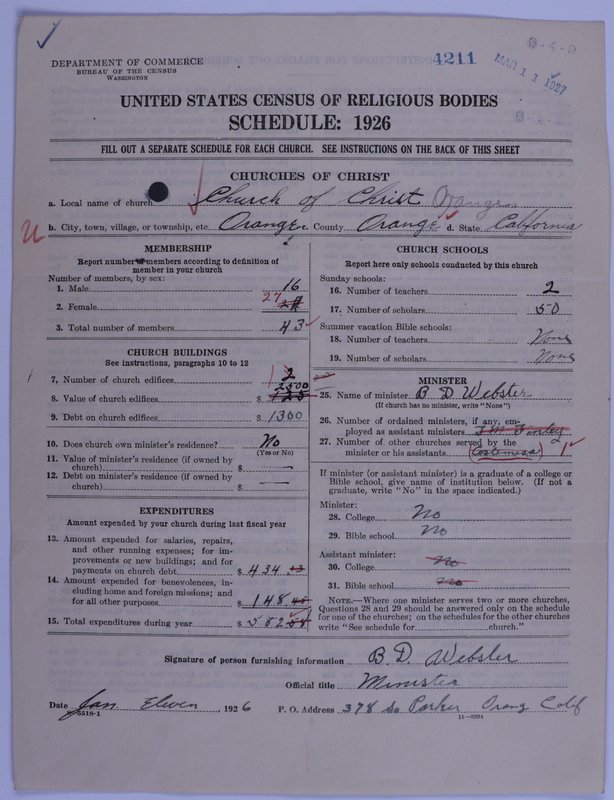 DEPARTMENT OF COMMERCE
BUREAU OF THE CENSUS
WASHINGTON
4211
MAR 11 1927
G-4-2
UNITED STATES CENSUS OF RELIGIOUS BODIES
SCHEDULE: 1926
FILL OUT A SEPARATE SCHEDULE FOR EACH CHURCH. SEE INSTRUCTIONS ON THE BACK OF THIS SHEET
CHURCHES OF CHRIST
a. Local name of church Church of Christ Orange
U
b. City, town, village, or township, etc. Orange c. County Orange d. State California
MEMBERSHIP
Report number of members according to definition of
member in your church
Number of members, by sex:
1. Male 16
2. Female 27
3. Total number of members 43
CHURCH BUILDINGS
See instructions, paragraphs 10 to 12
7. Number of church edifices 1 2
8. Value of church edifices $ 2500
9. Debt on church edifices $ 1300
10. Does church own minister's residence? No
(Yes or No)
11. Value of minister's residence (if owned by
church) $ —
12. Debt on minister's residence (if owned by
church) $ —
EXPENDITURES
Amount expended by your church during last fiscal year
13. Amount expended for salaries, repairs,
and other running expenses; for im-
provements or new buildings; and for
payments on church debt $ 434.13
14. Amount expended for benevolences, in-
cluding home and foreign missions; and
for all other purposes $ 148.45
15. Total expenditures during year $ 582.58
CHURCH SCHOOLS
Report here only schools conducted by this church
Sunday schools:
16. Number of teachers 2
17. Number of scholars 50
Summer vacation Bible schools:
18. Number of teachers None
19. Number of scholars None
MINISTER
25. Name of minister B D Webster
(If church has no minister, write "None")
26. Number of ordained ministers, if any, em-
ployed as assistant ministers
27. Number of other churches served by the
minister or his assistants (Costemesa) 1
If minister (or assistant minister) is a graduate of a college or
Bible school, give name of institution below. (If not a
graduate, write "No" in the space indicated.)
Minister:
28. College No
29. Bible school No
Assistant minister:
30. College No
31. Bible school No
NOTE.—Where one minister serves two or more churches,
Questions 28 and 29 should be answered only on the schedule
for one of the churches; on the schedules for the other churches
write "See schedule for church."
Signature of person furnishing information B. D. Webster
Official title Minister
Date Jan Eleven, 1926 P. O. Address 378 So Parker Orang Calif
8-5518-1
11—9294